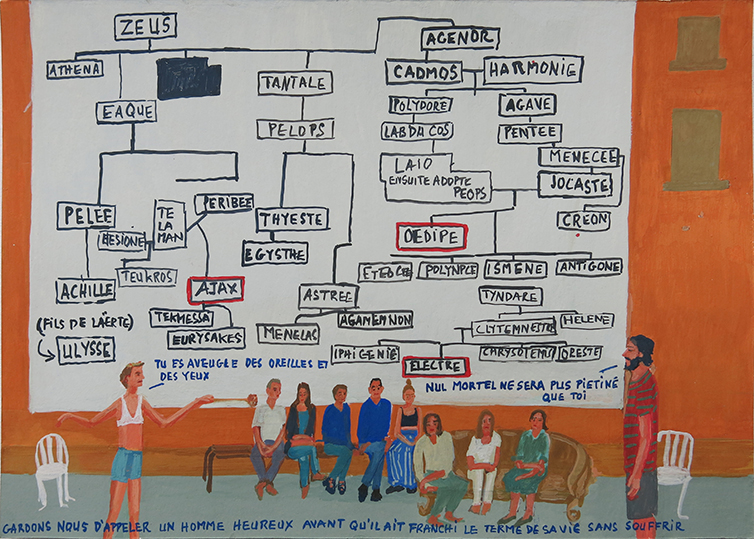 ZEUS
AGENOR
ATHENA
TANTALE
CADMOS
HARMONIE
EAQUE
POLYDORE
AGAVE
PELOPS
LABDACOS
PENTEE
MENECEE
LAIO
ENSUITE ADOPTE
PEOPS
JOCASTE
PELEE
TE
LA
MAN
PERIBEE
THYESTE
CREON
HESIONE
OEDIPE
EGYSTHE
TEUKROS
POLYNPCE
ISMENE
ANTIGONE
ACHILLE
AJAX
ASTREE
TYNDARE
TEKMESSA
AGAMEMNON
HELENE
(FILS DE LAËRTE)
EURYSAKES
MENELAS
ULYSSE
IPHIGENIE
ELECTRE
ORESTE
TU ES AVEUGLE DES OREILLES ET
DES YEUX
NUL MORTEL NE SERA PLUS PIETINÉ
QUE TOI
GARDONS NOUS D'APPELER UN HOMME HEUREUX AVANT QU'IL AIT FRANCHI LE TERME DE SA VIE SANS SOUFFRIR